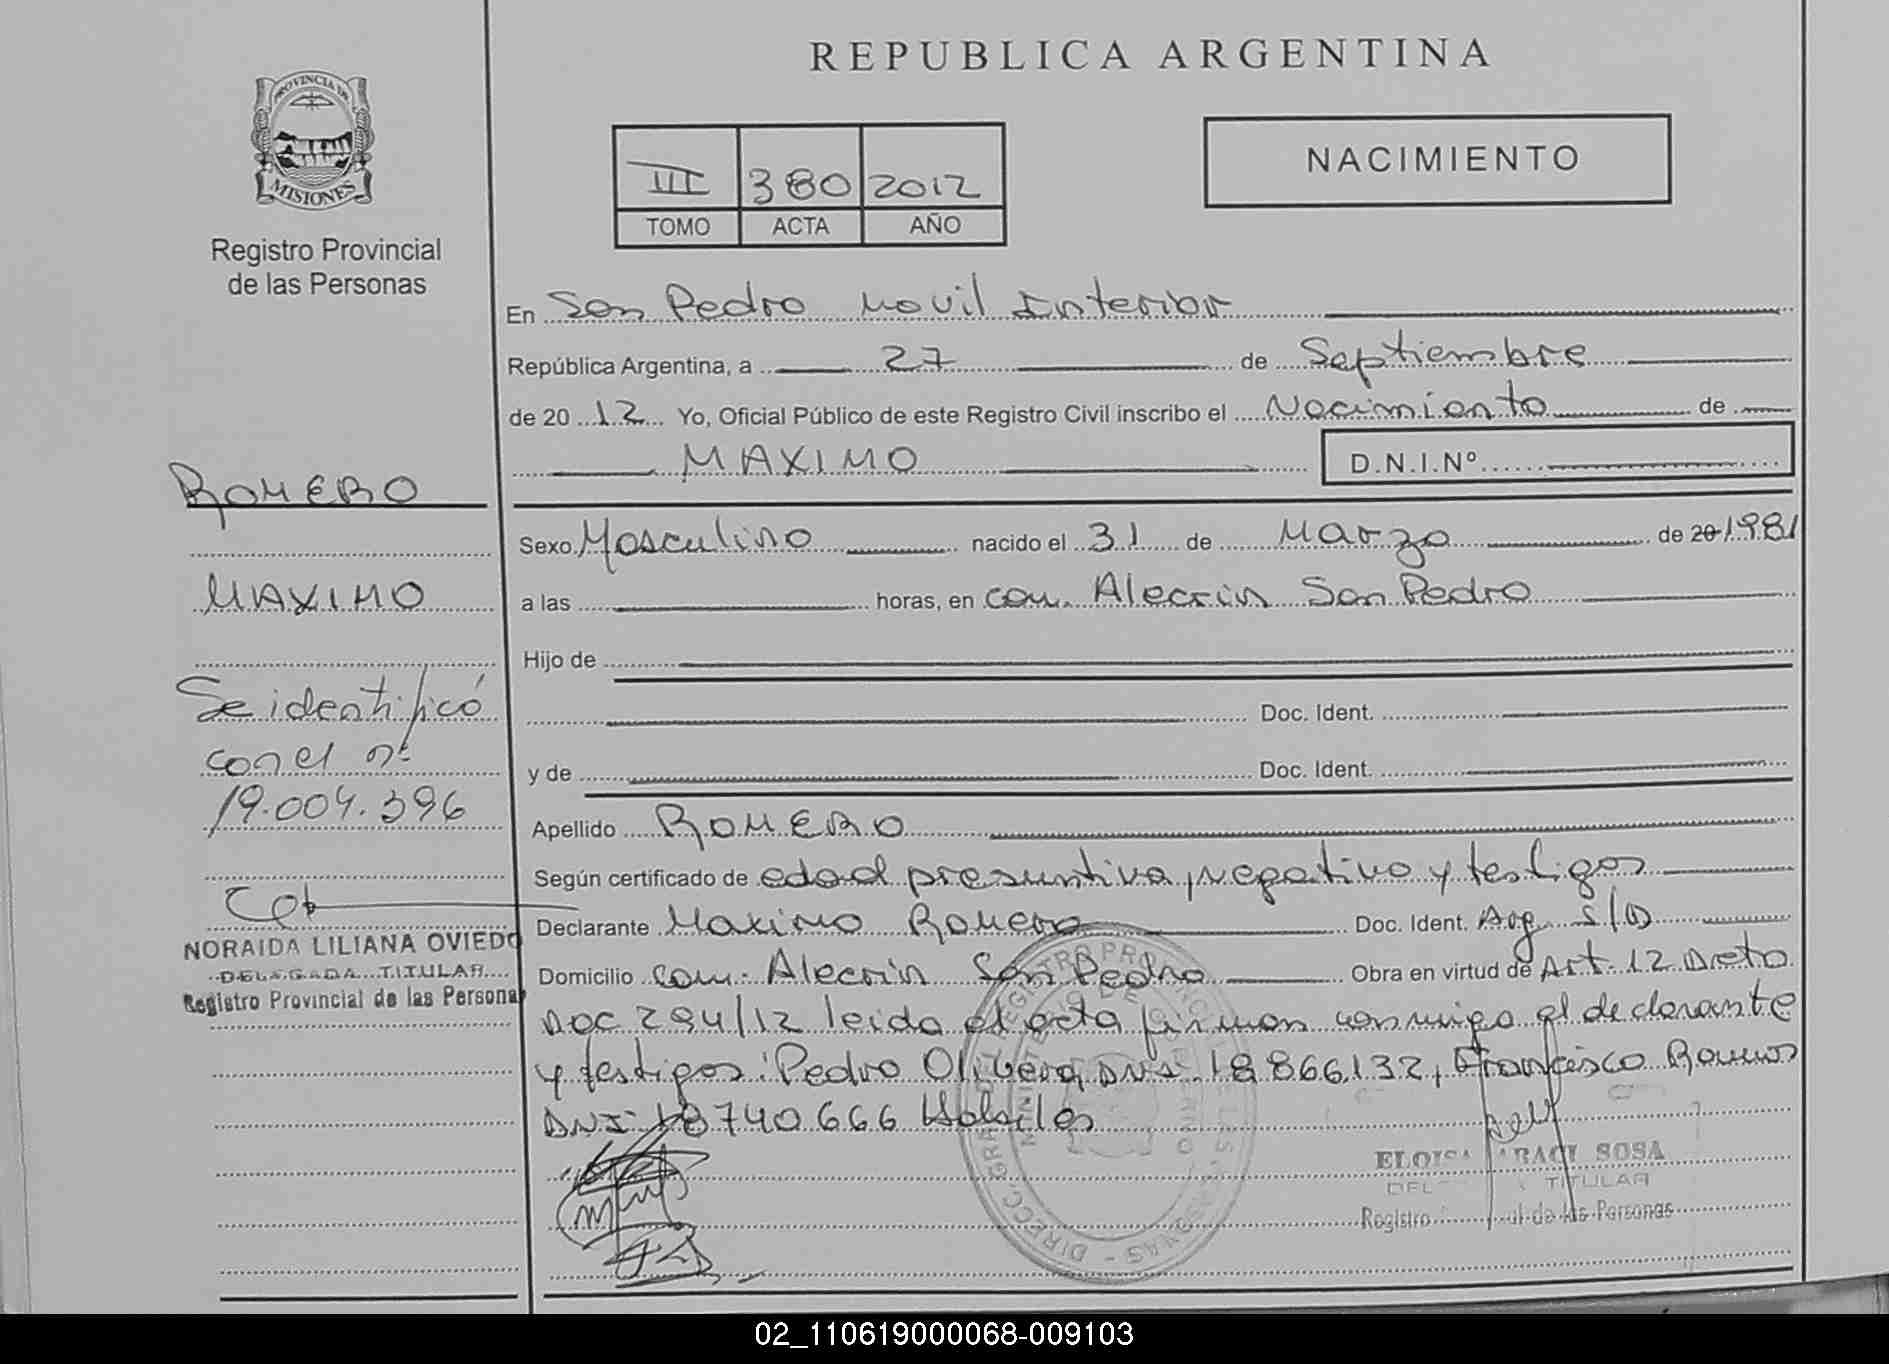 REPUBLICA ARGENTINA
PROVINCIA DE
MISIONES
Registro Provincial
de las Personas
III 380 2012
TOMO ACTA AÑO
NACIMIENTO
En San Pedro Movil Interior
República Argentina, a 27 de Septiembre
de 20 12 Yo, Oficial Público de este Registro Civil inscribo el Nacimiento de
MAXIMO D.N.I.Nº
ROMERO
MAXIMO
Se identificó
con el nº
19.004.396
NORAIDA LILIANA OVIEDO
DELEGADA TITULAR
Registro Provincial de las Personas
Sexo Masculino nacido el 31 de Marzo de 20 1981
a las horas, en com. Alecrin San Pedro
Hijo de
Doc. Ident.
y de Doc. Ident.
Apellido ROMERO
Según certificado de edad presuntiva, negativo y testigos
Declarante Maximo Romero Doc. Ident. Arg. S/D
Domicilio com. Alecrin San Pedro Obra en virtud de Art. 12 Dreto
DOC 294/12 leida el acta firman conmigo el declarante
y testigos: Pedro Olivera DNI. 18 866.132, Francisco Ramos
DNI 18740.666 Habiles
ELOISA ARACI SOSA
TITULAR
Registro de las Personas
02_110619000068-009103